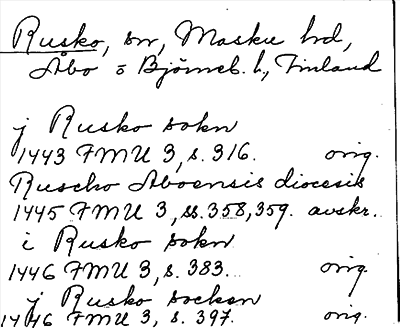 Rusko, sn, Masku hd,
Åbo o Björneb. l., Finland
j Rusko sokn
1443 FMU 3, s. 316. orig.
Ruscho Aboensis diocesis
1445 FMU 3, ss. 358, 359. avskr.
i Rusko sokn
1446 FMU 3, s. 383. orig.
j Rusko socken
1446 FMU 3, s. 397. orig.